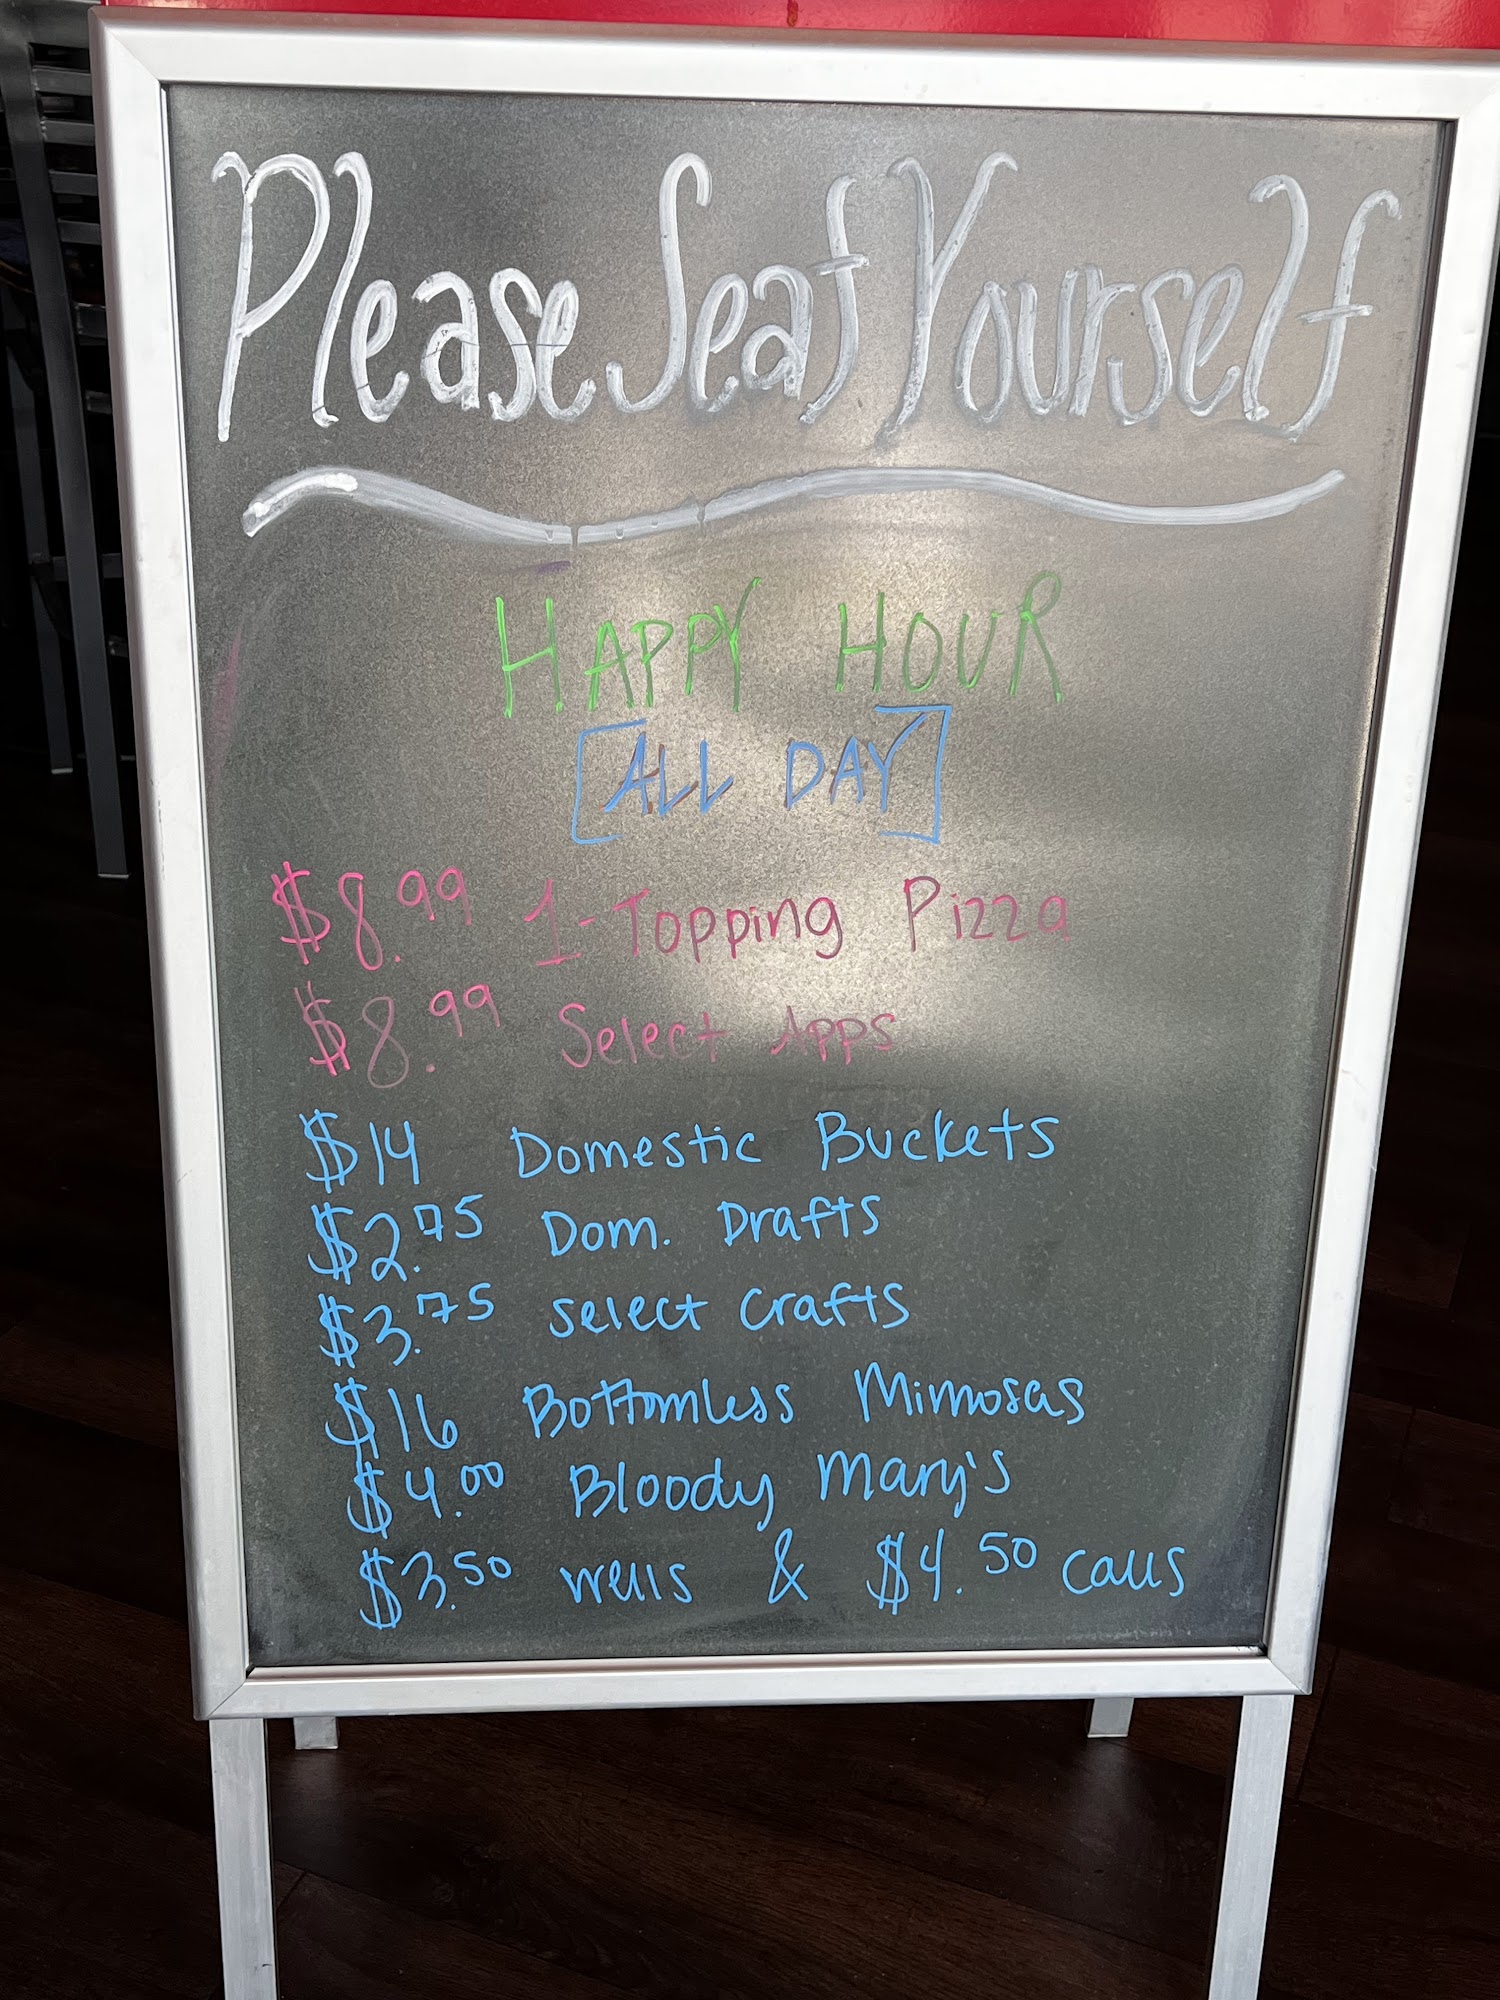 Please Seat Yourself
HAPPY HOUR
[ALL DAY]
$8.99 1-Topping Pizza
$8.99 Select Apps
$14 Domestic Buckets
$2.75 Dom. Drafts
$3.75 select crafts
$16 Bottomless Mimosas
$4.00 Bloody Mary's
$3.50 wells & $4.50 calls